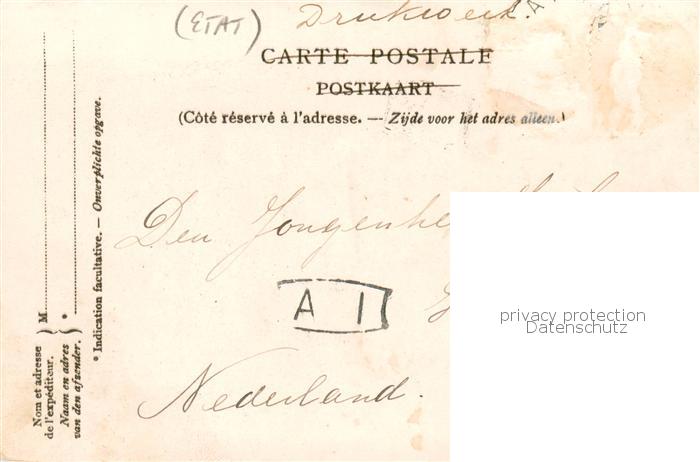 (ETAT)
Drukwerk.
CARTE POSTALE
POSTKAART
(Côté réservé à l'adresse. — Zijde voor het adres alleen.)
Den
A I
Nederland.
privacy protection
Datenschutz
Nom et adresse
de l'expéditeur.
Naam en adres
van den afzender.
M
*
* Indication facultative. — Onverplichte opgave.